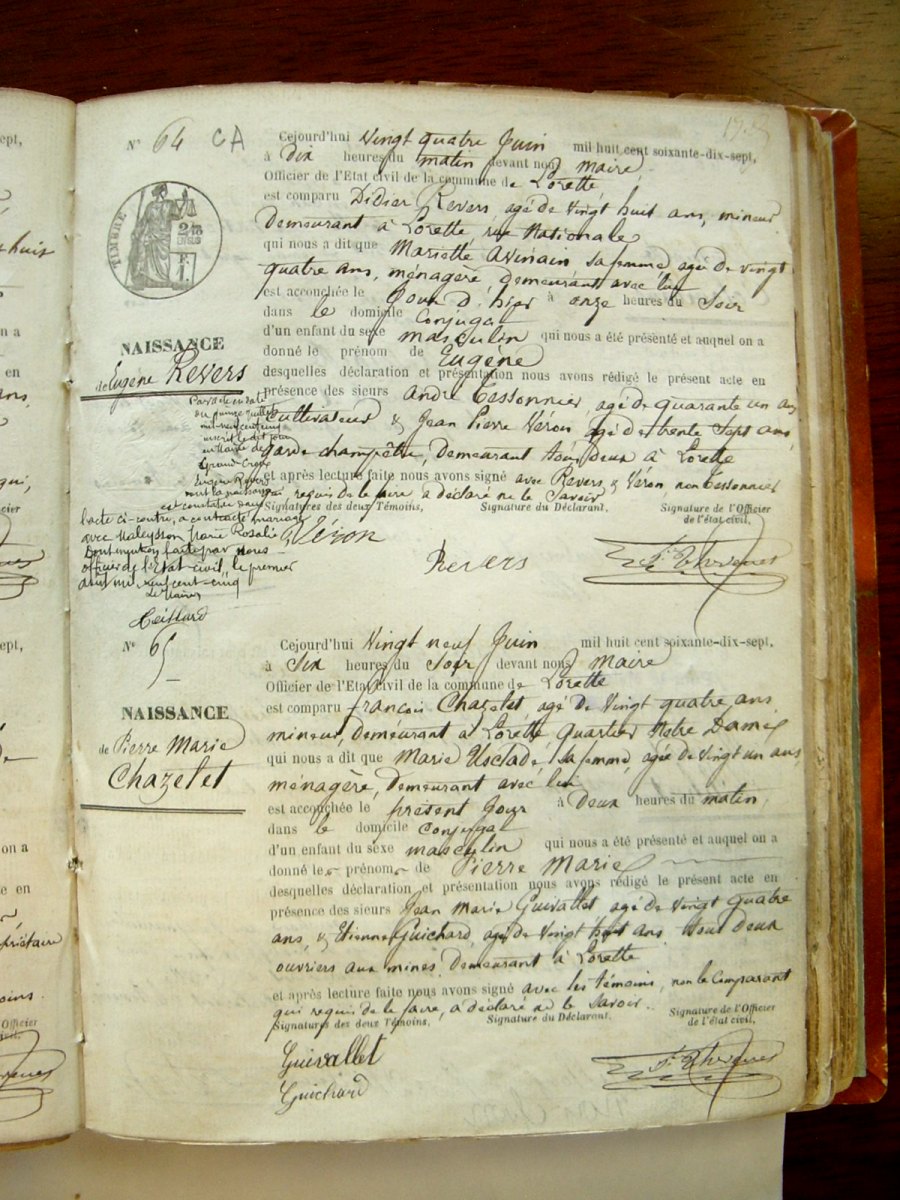 Nº 64 CA
TIMBRE
NAISSANCE
de Eugène Revers
Par acte en date
du quinze juillet
mil neuf cent cinq
inscrit le dit jour
en Mairie de
Grand-Croix
Eugène Revers
dont la naissance
est constatée dans
l'acte ci-contre, a contracté mariage
avec Maleysson Marie Rosalie
Dont mention faite par Nous
officier de l'Etat civil, le premier
août mil neuf cent cinq
Le Maire
Cejourd'hui Vingt quatre Juin mil huit cent soixante-dix-sept,
à Dix heures du matin devant nous Maire
Officier de l'Etat civil de la commune de Lorette
est comparu Didier Revers, agé de Vingt huit ans, mineur
Demeurant à Lorette rue Nationale
qui nous a dit que Mariette Avinain sa femme, agée de vingt
quatre ans, ménagère, demeurant avec lui
est accouchée le Jour d'hier à onze heures du Soir
dans le domicile Conjugal
d'un enfant du sexe masculin qui nous a été présenté et auquel on a
donné le prénom de Eugène
desquelles déclaration et présentation nous avons rédigé le présent acte en
présence des sieurs André Cessonnier, agé de quarante un ans,
Cultivateur & Jean Pierre Véron agé de trente Sept ans,
garde champêtre, Demeurant tous deux à Lorette
et après lecture faite nous avons signé avec Revers, & Véron, non Cessonnier
qui requis de le faire a déclaré ne le Savoir
Signatures des deux Témoins, Signature du Déclarant, Signature de l'Officier
de l'état civil,
Véron
Revers
Nº 65
NAISSANCE
de Pierre Marie
Chazelet
Cejourd'hui Vingt neuf Juin mil huit cent soixante-dix-sept,
à Six heures du Soir devant nous Maire
Officier de l'Etat civil de la commune de Lorette
est comparu François Chazelet agé de Vingt quatre ans
mineur, demeurant à Lorette quartier Notre Dame
qui nous a dit que Marie Usclade, sa femme, agée de vingt un ans,
ménagère, Demeurant avec lui
est accouchée le présent Jour à Deux heures du matin,
dans le domicile Conjugal
d'un enfant du sexe masculin qui nous a été présenté et auquel on a
donné le prénom de Pierre Marie
desquelles déclaration et présentation nous avons rédigé le présent acte en
présence des sieurs Jean Marie Guivallet agé de Vingt quatre
ans, & Etienne Guichard, agé de Vingt ans tous deux
ouvriers aux mines, Demeurant à Lorette
et après lecture faite nous avons signé avec les témoins, non le Comparant
qui requis de le faire, a déclaré ne le Savoir.
Signatures des deux Témoins, Signature du Déclarant, Signature de l'Officier
de l'état civil,
Guivallet
Guichard